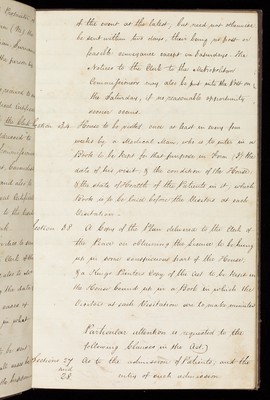 of the event at the latest, but need not otherwise
be sent within two days, there being no post or
feasible conveyance except on Saturdays. The
Notices to the Clerk to the Metropolitan
Commissioners may also be put into the Post on
the Saturdays, if no reasonable opportunity
sooner occurs.
Section 34 House to be visited once at least in every four
weeks by a Medical Man, who is to enter in a
Book to be kept for that purpose in Form (F) the
date of his visit & the condition of the House
& the state of Health of the Patients in it, which
Book is to be laid before the Visitors at each
Visitation.
Section 38 A Copy of the Plan delivered to the Clerk of
the Peace on obtaining the License to be hung
up in some conspicuous part of the House,
& a Kings Printers Copy of the Act to be kept in
the House bound up in a Book in which the
Visitors at each Visitation are to make minutes
Particular attention is requested to the
following Clauses in the Act.
Sections 27 As to the admission of Patients, and the
and
28 entry of such admission